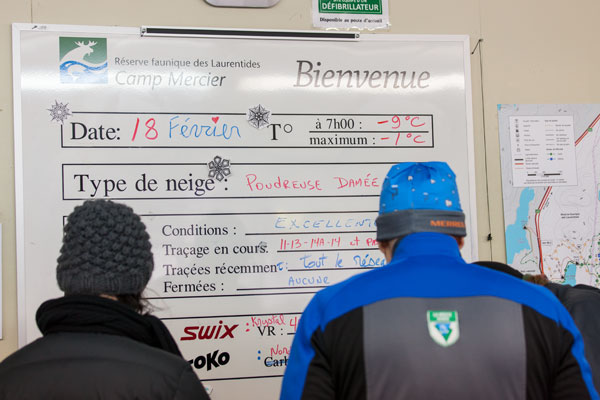 DÉFIBRILLATEUR
Disponible au poste d'accueil
Réserve faunique des Laurentides
Camp Mercier
Bienvenue
Date: 18 Février T° à 7h00 : -9°C
maximum : -1°C
Type de neige : POUDREUSE DAMÉE
Conditions : EXCELLENTE
Traçage en cours: 11-13-14A-14 et
Tracées récemment: Tout le
Fermées : AUCUNE
SWIX : Krystal
VR :
TOKO